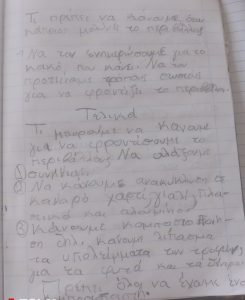 Τι πρέπει να κάνουμε όταν
κάποιος μολύνει το περιβάλλον
- Να τον ενημερώσουμε για το
κακό, που κάνει. Να του
προτείνουμε τρόπους σωστούς
για να φροντίζει το περιβάλλον.
Τελικά
Τι μπορούμε να κάνουμε
για να φροντίσουμε το
περιβάλλον; Να αλλάξουμε
① συνήθειες
② Να κάνουμε ανακύκλωση σε
καθαρό χαρτί, γυαλί, πλα-
στικό και αλουμίνιο
③ Κάνουμε κομποστοποίη-
ση δηλ. κάνουμε λίπασμα
τα υπολείμματα των τροφών
για τα φυτά και τα δέντρα
Πρέπει όλοι να έχουμε ένα